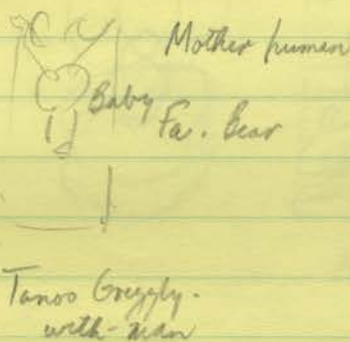 Mother human
Baby
Fa. Bear
Tanoo Grizzly.
with-man